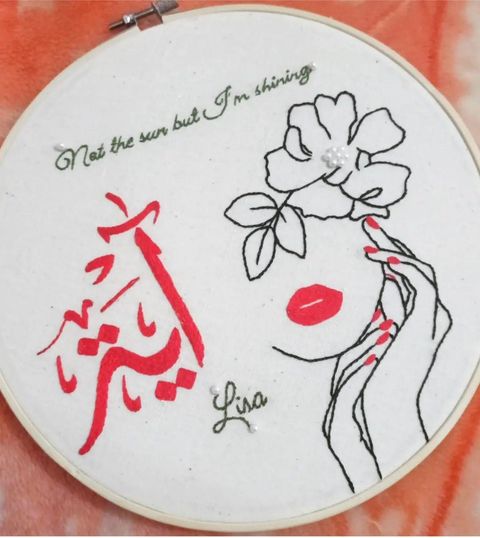 Not the sun but I'm shining
Lisa